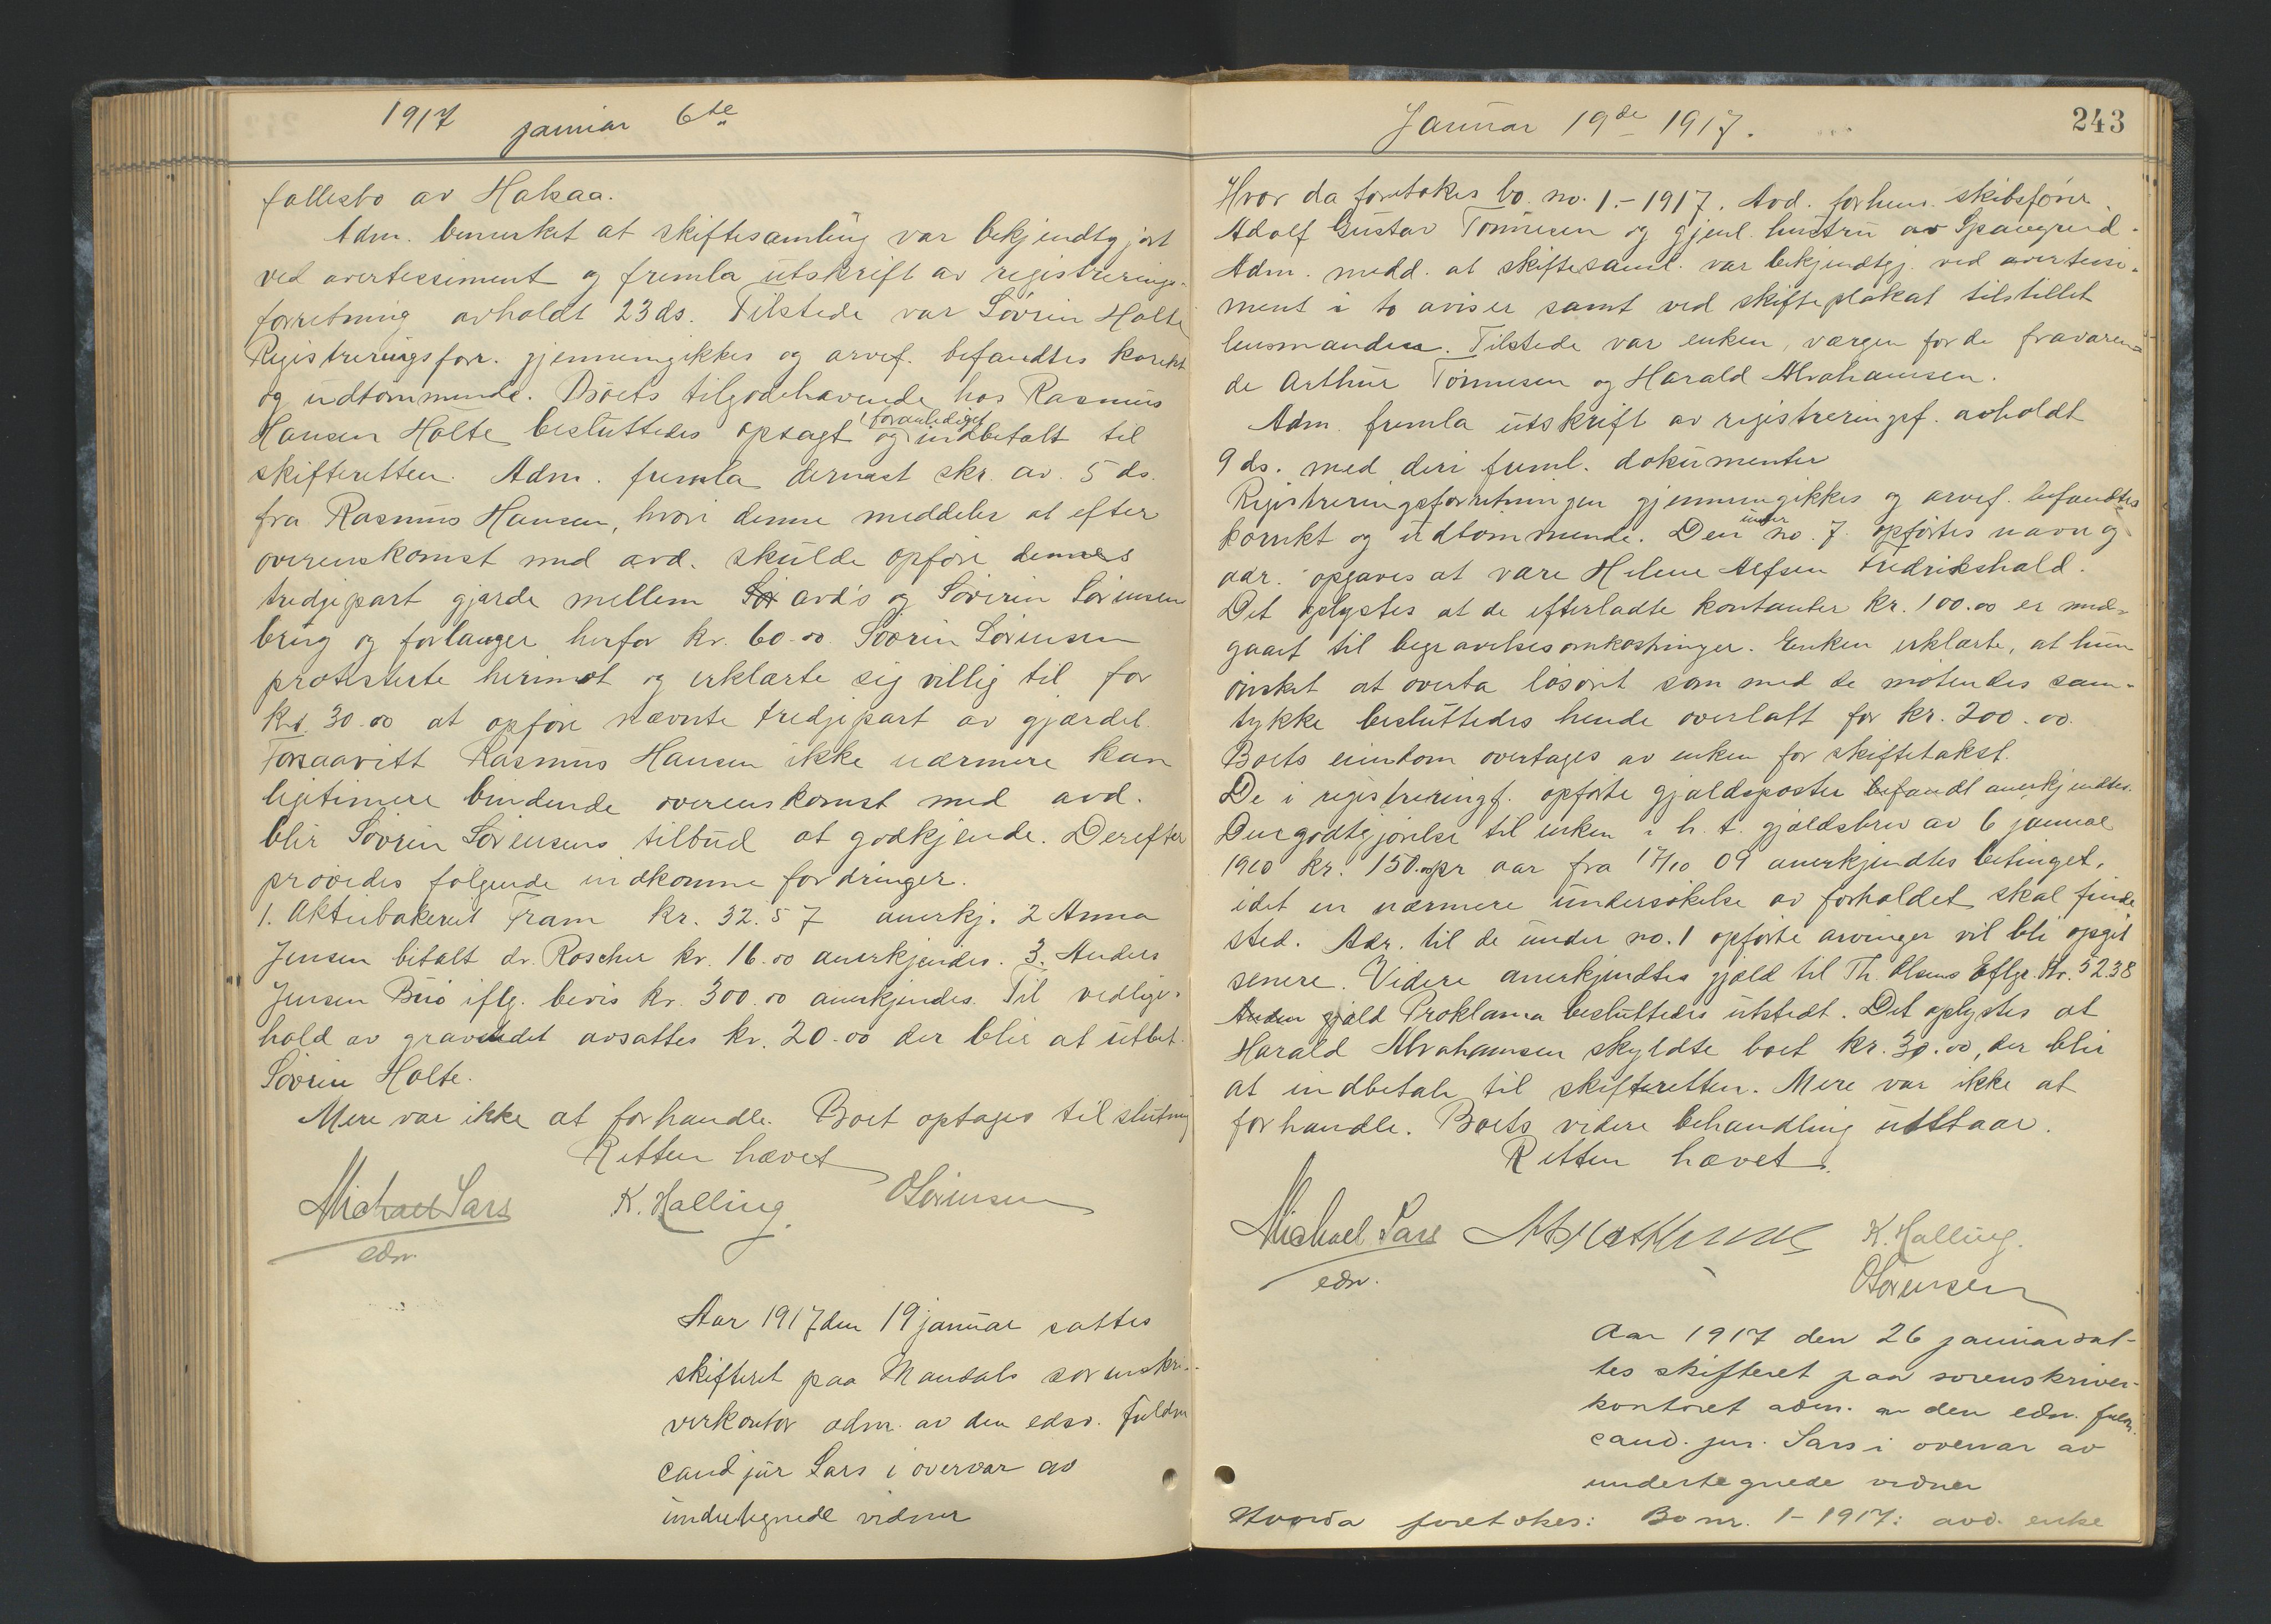 1917 januar 6te
fællesbo av Halsaa.
Adm. bemerket at skiftesamling var bekjendtgjort
ved avertessiment og fremla utskrift av registrerings-
forretning avholdt 23 ds. Tilstede var Sövrin Holte
Registreringsforr. gjennemgikkes og arvef. befandtes korekt
og udtömmende. Boets tilgodehavende hos Rasmus
Hansen Holte besluttedes opsagt og foranlediget indbetalt til
skifteretten. Adm. fremla dernæst skr. av 5 ds.
fra Rasmus Hansen, hvori denne meddeler at efter
overenskomst med avd. skulde opföre dennes
tredjepart gjærde mellem avd's og Söverin Sörensen
brug og forlanger herfor kr. 60.00 Sövrin Sörensen
protesterte herimot og erklærte sig villig til for
kr. 30.00 at opföre nævnte tredjepart av gjærdet.
Forsaavitt Rasmus Hansen ikke nærmere kan
legitimere bindende overenskomst med avd.
blir Sövrin Sörensens tilbud at godkjende. Derefter
prövedes fölgende indkomne fordringer.
1. Aktiebakeriet Fram kr. 32.57 anerkj. 2 Anna
Jensen betalt dr. Roscher kr. 16.00 anerkjendes. 3. Anders
Jensen Buö iflg. bevis kr. 300.00 anerkjendes. Til vedlige-
hold av gravstedet avsattes kr. 20.00 der blir at utbet.
Sövrin Holte.
Mere var ikke at forhandle. Boet optages til slutning
Retten hævet
Michael Sars K. Halling OSörensen
edsv.
Aar 1917 den 19 januar sattes
skifteret paa Mandals sorenskri-
verkontor adm. av den edsv. fuldm
cand jur Sars i overvær av
undertegnede vidner
Januar 19de 1917. 243
Hvor da foretokes bo no. 1.-1917. Avd. forhenv. skibsförer
Adolf Gustav Tönnesen og gjenl. hustru av Spangereid.
Adm. medd. at skiftesaml. var bekjendtgj. ved avertissi-
ment i to aviser samt ved skifteplakat tilstillet
lensmanden. Tilstede var enken, værgen for de fraværen-
de Arthur Tönnesen og Harald Abrahamsen.
Adm. fremla utskrift av registreringsf. avholdt
9 ds. med deri freml. dokumenter
Registreringsforretningen gjennemgikkes og arvef. befandtes
korrekt og udtömmende. Den under no. 7 opförtes navn og
adr. opgaves at være Helene Alfsen Fredrikshald.
Det oplystes at de efterladte kontanter kr. 100.00 er med-
gaaet til begravelsesomkostninger. Enken erklærte, at hun
önsket at overta lösöret som med de mötendes sam-
tykke besluttedes hende overlatt for kr. 200.00.
Boets eiendom overtages av enken for skiftetakst.
De i registreringsf. opförte gjældsposter befandt anerkjendtes.
Den godtgjörelse til enken i h. t. gjældsbrev av 6 januar
1910 kr. 150.00 pr aar fra 17/10 09 anerkjendtes betinget,
idet en nærmere undersökelse av forholdet skal finde
sted. Adr. til de under no. 1 opförte arvinger vil bli opgit
senere. Videre anerkjendtes gjæld til Th. Olsens Eftgr. kr. 52.38
Anden gjæld Proklama besluttedes utstedt. Det oplystes at
Harald Abrahamsen skyldte boet kr. 30.00, der blir
at indbetale til skifteretten. Mere var ikke at
forhandle. Boets videre behandling utstaar.
Retten hævet.
Michael Sars K. Halling.
edsv. OSörensen
Aar 1917 den 26 januar sat-
tes skifteret paa sorenskriver-
kontoret adm. av den edsv. fuldm.
cand. jur. Sars i overvær av
undertegnede vidner
Hvorda foretokes: Bo nr. 1-1917: avd. enke